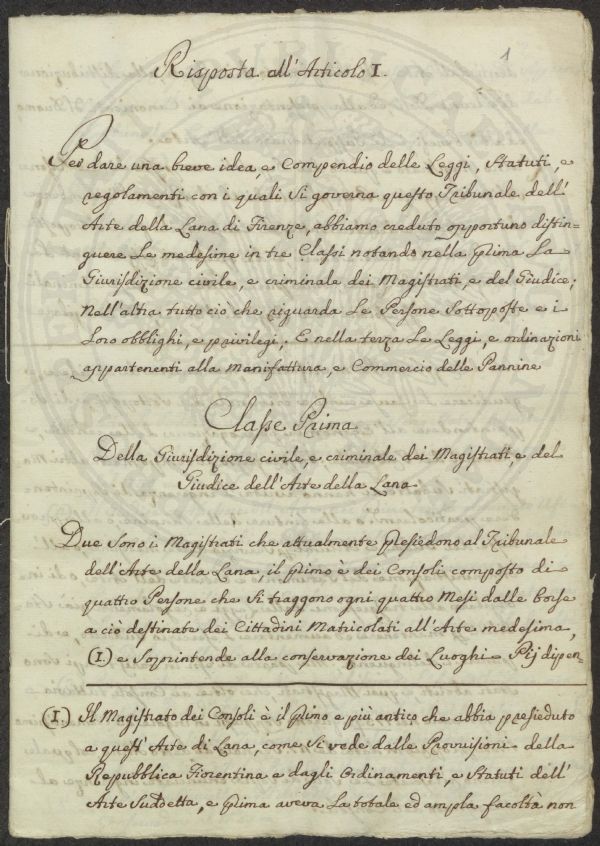 1
Risposta all'Articolo I.
Per dare una breve idea, e Compendio delle Leggi, Statuti, e
regolamenti con i quali si governa questo Tribunale dell'
Arte della Lana di Firenze, abbiamo creduto opportuno distin=
guere Le medesime in tre Classi notando nella prima La
Giurisdizione civile, e criminale dei Magistrati, e del Giudice;
Nell'altra tutto ciò che riguarda Le Persone Sottoposte e i
Loro obblighi, e privilegi. E nella terza Le Leggi, e ordinazioni
appartenenti alla Manifattura, e Commercio delle Pannine
Classe Prima
Della Giurisdizione civile, e criminale dei Magistrati, e del
Giudice dell'Arte della Lana
Due Sono i Magistrati che attualmente presiedono al Tribunale
dell'Arte della Lana, il primo è dei Consoli composto di
quattro Persone che Si traggono ogni quattro Mesi dalle borse
a ciò destinate dei Cittadini Matricolati all'Arte medesima,
(1.) e Soprintende alla conservazione dei Luoghi Pij dipen=
(1.) Il Magistrato dei Consoli è il primo e più antico che abbia presieduto
a quest'Arte di Lana, come Si vede dalle Provvisioni della
Repubblica Fiorentina e dagli Ordinamenti, e Statuti dell'
Arte Suddetta, e prima aveva La totale ed ampla facoltà non